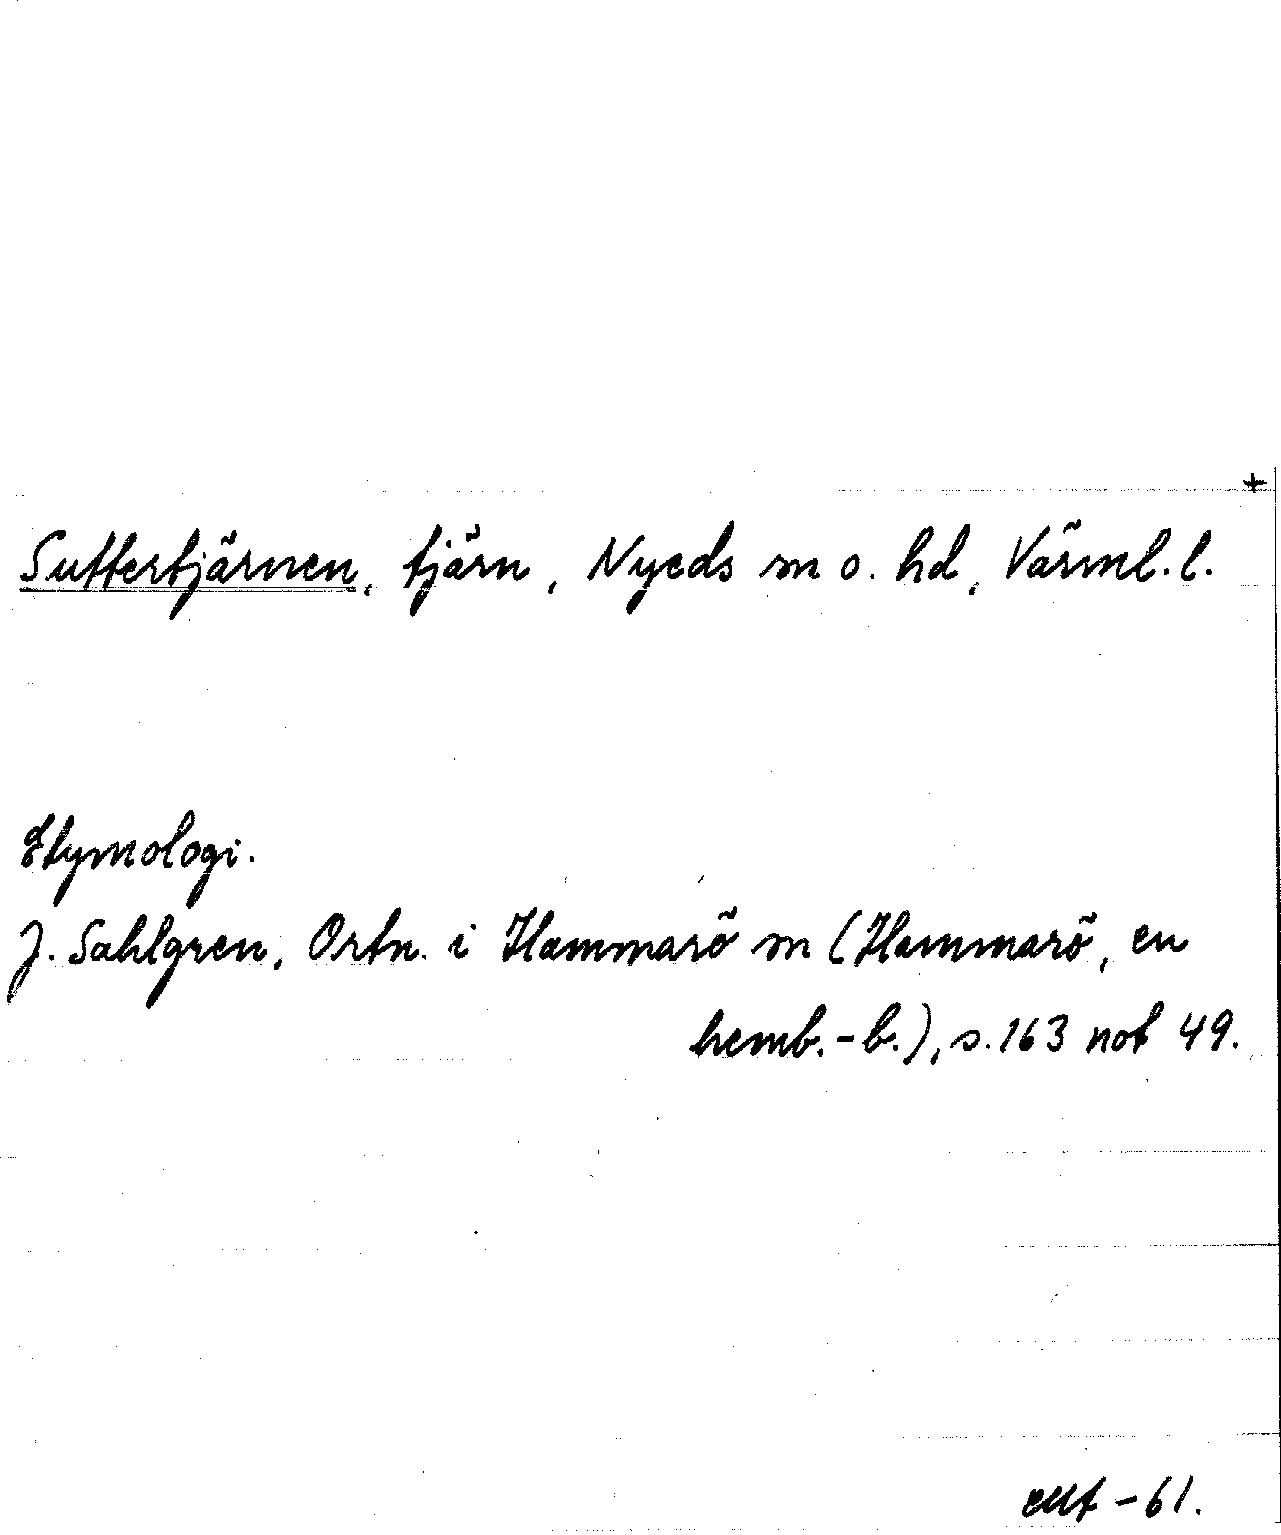 +
Suttertjärnen, tjärn, Nyeds sn o. hd, Värml. l.
Etymologi.
J. Sahlgren, Ortn. i Hammarö sn (Hammarö, en
hemb.-b.), s. 163 not 49.
-61.